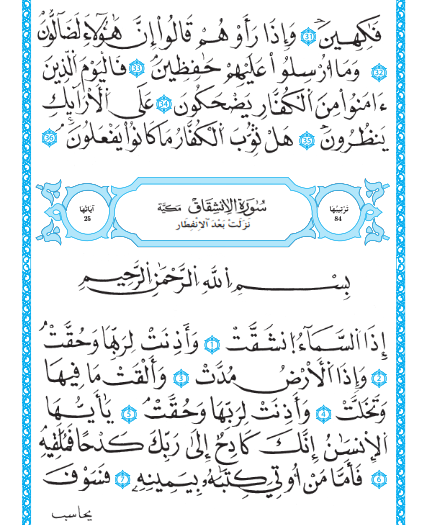 فَٰكِهِينَۖ 31 وَإِذَا رَأَوْهُمْ قَالُوٓاْ إِنَّ هَٰٓؤُلَآءِ لَضَآلُّونَ
32 وَمَآ أُرْسِلُواْ عَلَيْهِمْ حَٰفِظِينَۖ 33 فَالْيَوْمَ اَ۬لذِينَ
ءَامَنُواْ مِنَ اَ۬لْكُفَّارِ يَضْحَكُونَ 34 عَلَى اَ۬لْأَرَآئِكِ
يَنظُرُونَۖ 35 هَلْ ثُوِّبَ اَ۬لْكُفَّارُ مَا كَانُواْ يَفْعَلُونَۖ 36
ترتيبها 84 سُورَةُ الِانشِقَاقِ مَكيَّة آياتها 25
نزلت بعد الانفطار
بِسْمِ اِ۬للَّهِ اِ۬لرَّحْمَٰنِ اِ۬لرَّحِيمِ
إِذَا اَ۬لسَّمَآءُ اُ۪نشَقَّتْ 1 وَأَذِنَتْ لِرَبِّهَا وَحُقَّتْ
2 وَإِذَا اَ۬لْأَرْضُ مُدَّتْ 3 وَأَلْقَتْ مَا فِيهَا
وَتَخَلَّتْ 4 وَأَذِنَتْ لِرَبِّهَا وَحُقَّتْۖ 5 يَٰٓأَيُّهَا
اَ۬لْإِنسَٰنُ إِنَّكَ كَادِحٌ إِلَىٰ رَبِّكَ كَدْحاٗ فَمُلَٰقِيهِ
6 فَأَمَّا مَنْ أُوتِيَ كِتَٰبَهُۥ بِيَمِينِهِۦ 7 فَسَوْفَ
يحاسب